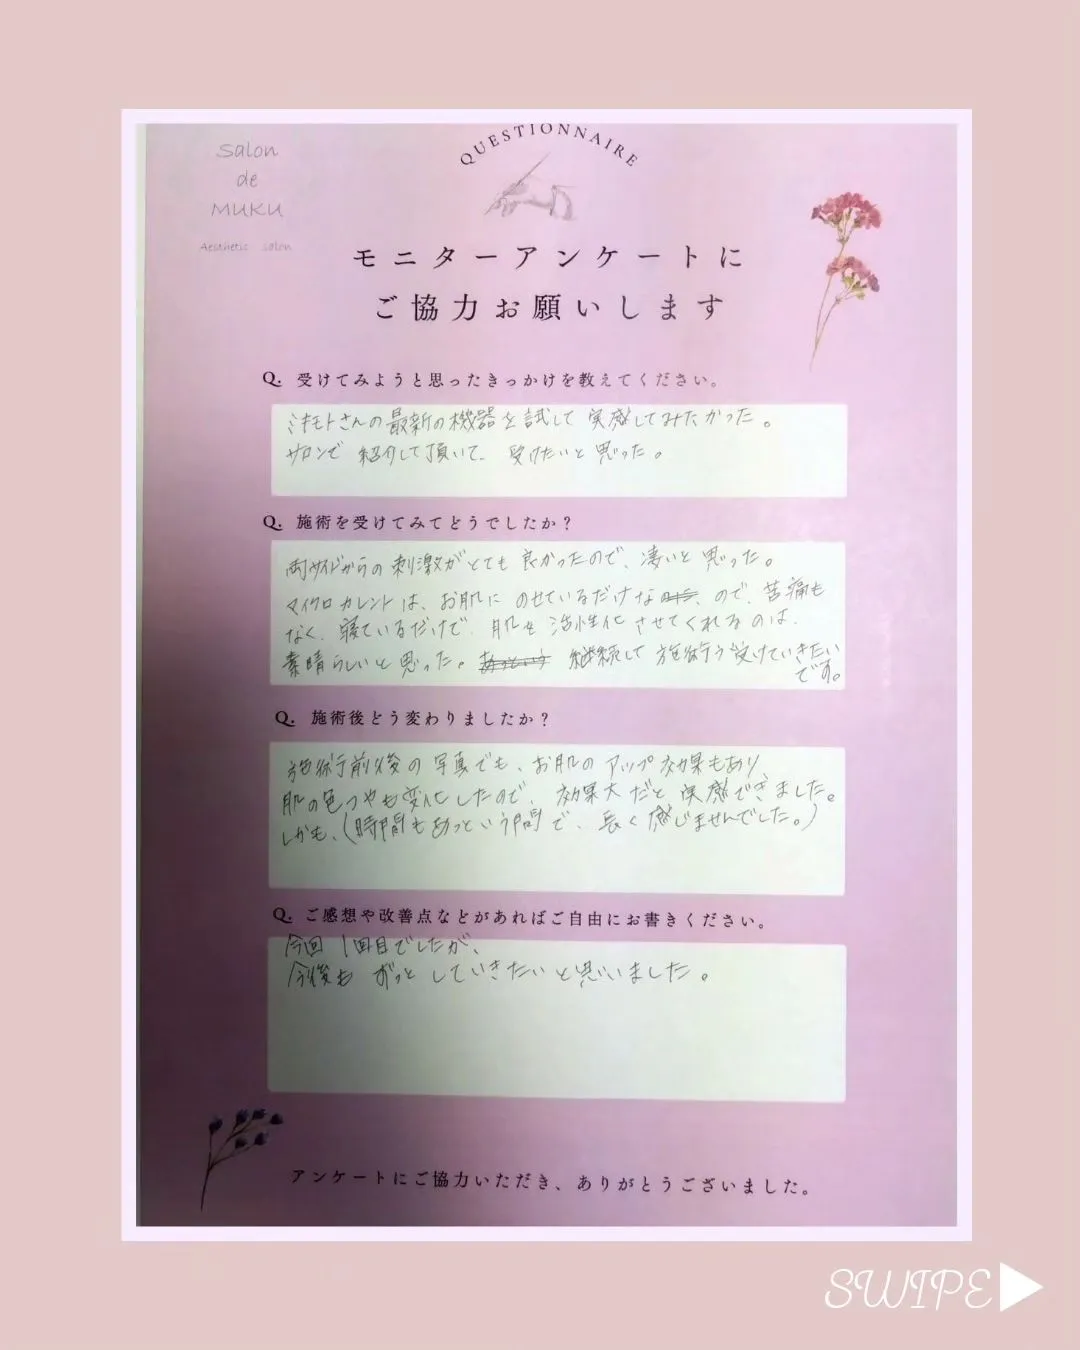 Salon
de
MUKU
Aesthetic salon
QUESTIONNAIRE
モニターアンケートに
ご協力お願いします
Q. 受けてみようと思ったきっかけを教えてください。
ミキモトさんの最新の機器を試して 実感してみたかった。
サロンで 紹介して頂いて、受けたいと思った。
Q. 施術を受けてみてどうでしたか？
両サイドからの刺激がとても良かったので、凄いと思った。
マイクロカレントは、お肌に のせているだけな ので、苦痛も
なく、寝ているだけで、肌を活性化させてくれるのは、
素晴らしいと思った。あっという 継続して施術う受けていきたい
です。
Q. 施術後どう変わりましたか？
施術前後の写真でも、お肌のアップ効果もあり
肌の色つやも変化したので、効果大だと実感できました。
しかも、(時間もあっという間で、長く感じませんでした。)
Q. ご感想や改善点などがあればご自由にお書きください。
今回 1回目でしたが、
今後も ずっと していきたいと思いました。
アンケートにご協力いただき、ありがとうございました。
SWIPE